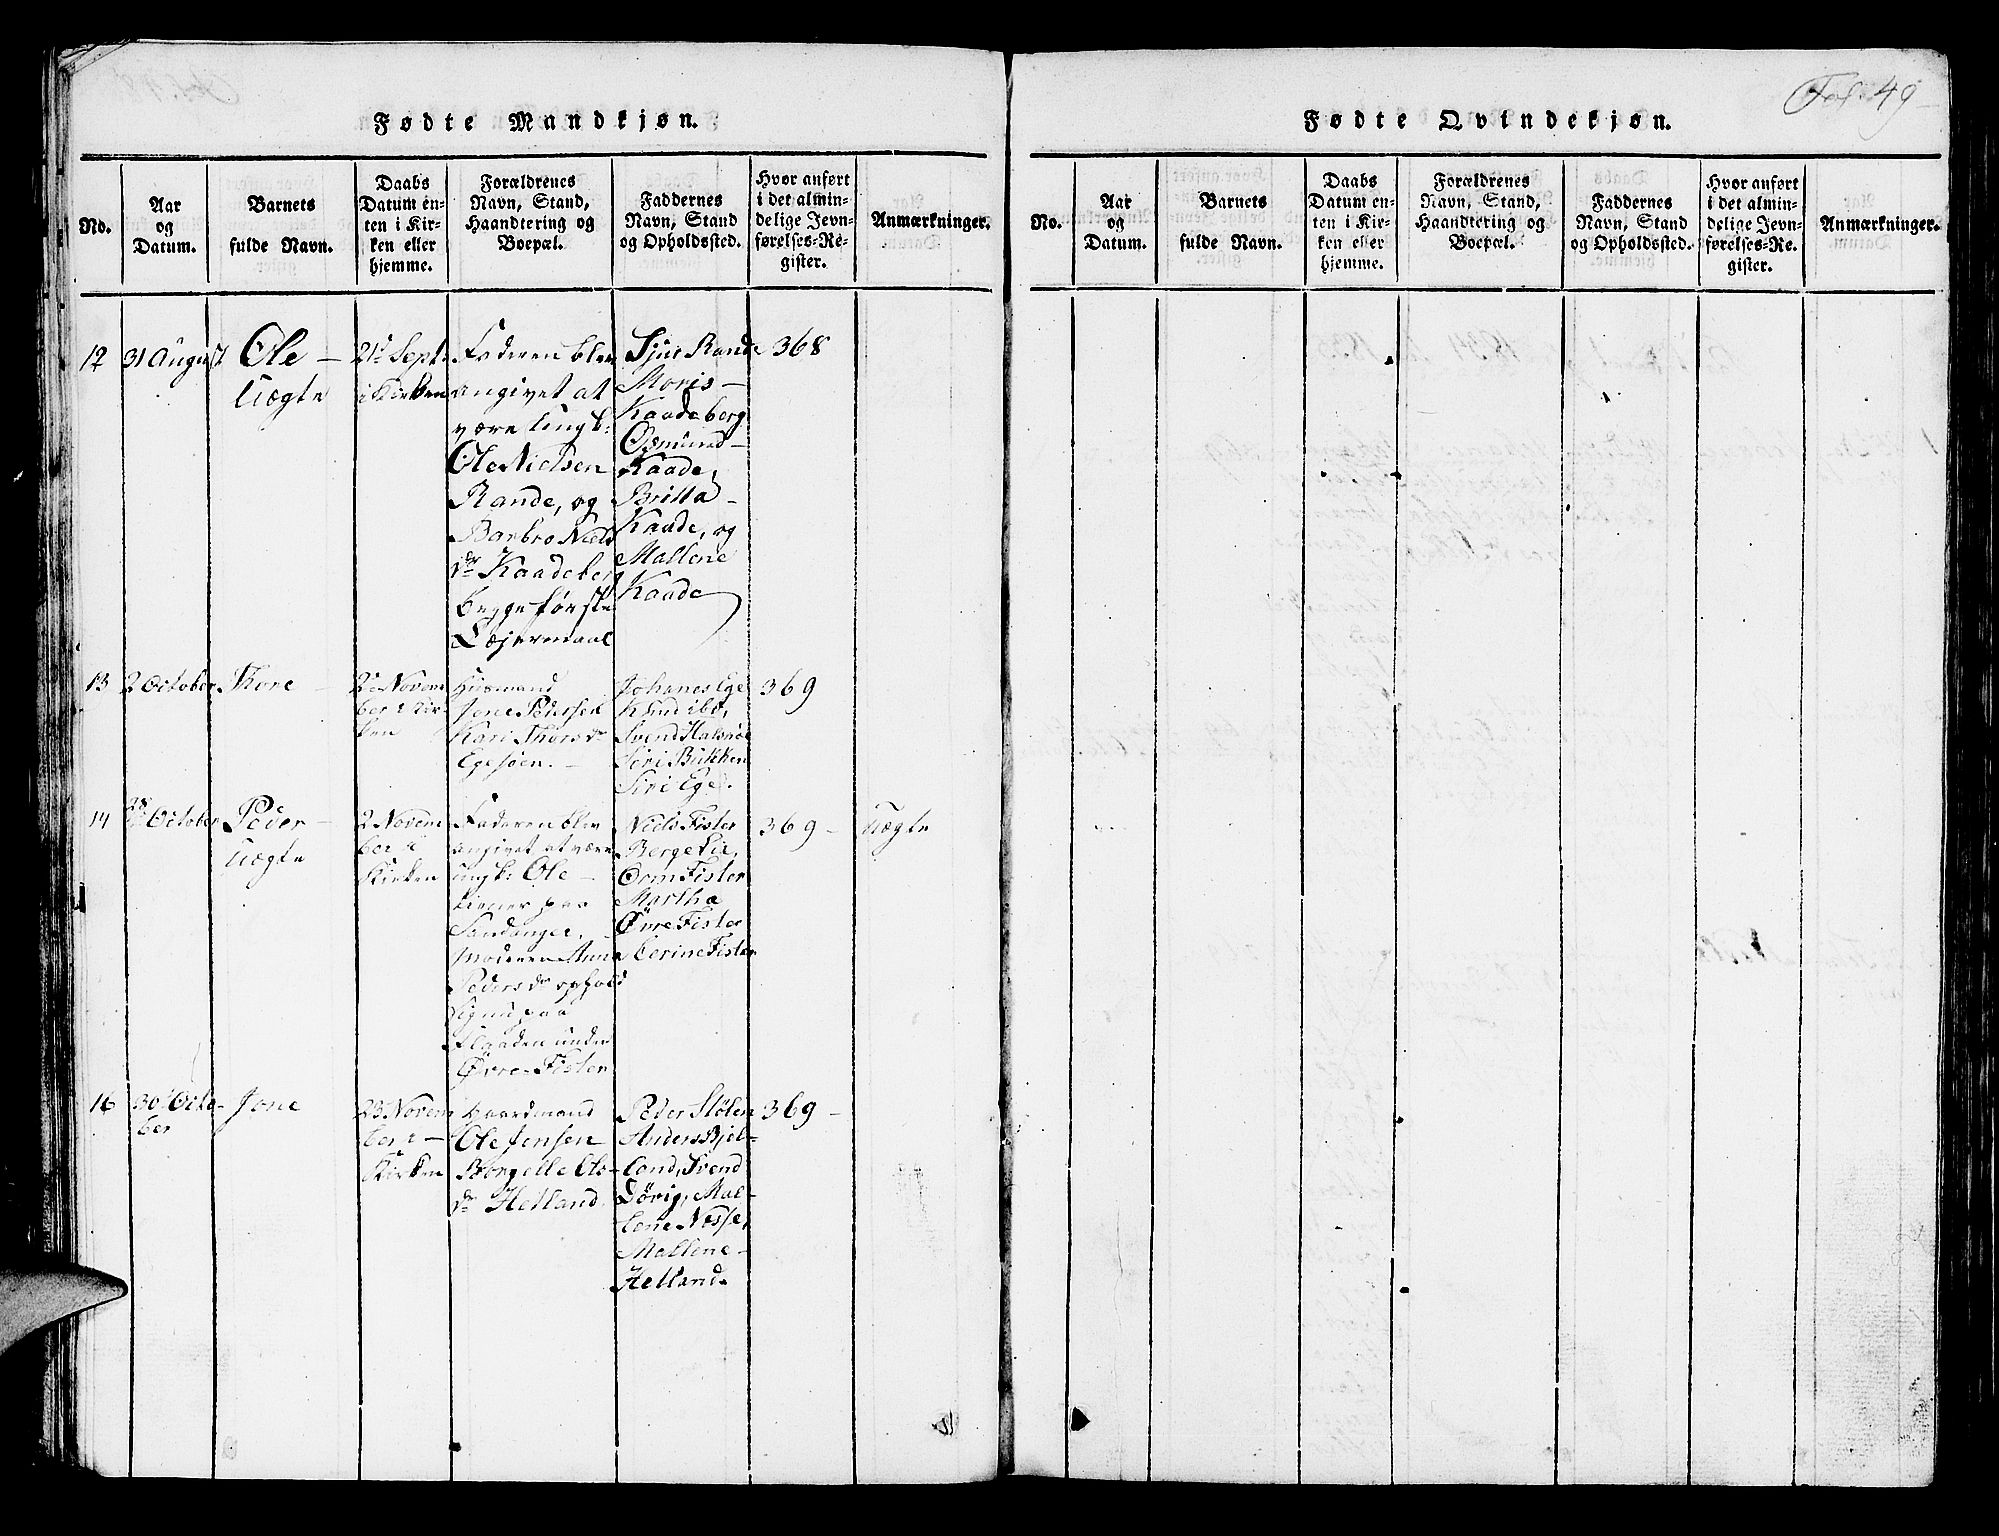 Fødte Mandkjøn.
No.
Aar
og
Datum.
Barnets
fulde Navn.
Daabs
Datum en-
ten i Kir-
ken eller
hjemme.
Forældrenes
Navn, Stand,
Haandtering og
Boepæl.
Faddernes
Navn, Stand
og Opholdssted.
Hvor anført
i det almin-
delige Jevn-
førelses-Re-
gister.
Anmærkninger.
12
31 August
Ole —
Uægte
21de Sept.
i Kirken
Faderen blev
angivet at
være Ungk:
Ole Nielsen
Rande, og
Barbro Niels
dr Kaadeberg
begge første
Lejermaal
Sjur Rande
Moris —
Kaadeberg
Osmund —
Kaade,
Britta —
Kaade, og
Mallene
Kaade
368
13
2 October
Thore —
2de Novem
ber i Kir-
ken
Huusmand
Jone Pedersen
Kari Thorsdr
Egesøen. —
Johanes Ege
Knud ibd,
Svend Halsnøe
Siri Bukken
Siri Ege.
369
14
28 October
Peder —
Uægte
2 Novem
ber i
Kirken
Faderen blev
angivet at være
ungk: Ole —
tiener paa
Sandanger.
Moderen Anna
Pedersdr ophold
Signu paa
Flaaden under
Øvre-Fister
Niels Fister
Berge Lie,
Orm Fister
Martha
Øvre Fister
Cerine Fister
369 —
Uægte
16
30 Octo-
ber
Jone
23 Novem
ber i —
Kirken
Gaardmand
Ole Jonsen
Borgelle Ols-
dr Helland.
Peder Stølen
Anders Bjel-
land, Svend
Lørig, Mal-
lene Nesse,
Mallene —
Helland.
369 —
Fol. 49
Fødte Qvindekjøn.
No.
Aar
og
Datum.
Barnets
fulde Navn.
Daabs
Datum en-
ten i Kir-
ken eller
hjemme.
Forældrenes
Navn, Stand,
Haandtering og
Boepæl.
Faddernes
Navn, Stand
og Opholdssted.
Hvor anført
i det almin-
delige Jevn-
førelses-Re-
gister.
Anmærkninger.